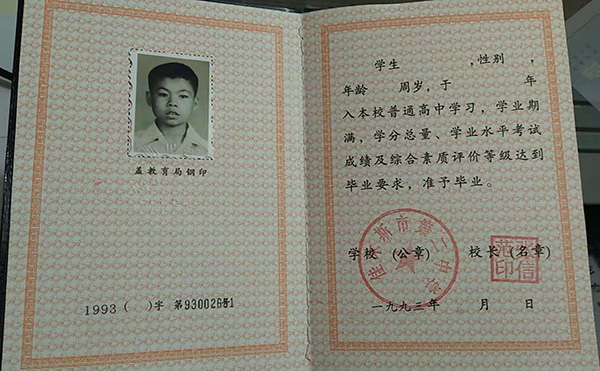 盖教育局钢印
1993( )字 第9300261号
学生 ,性别 ,
年龄 周岁,于 年
入本校普通高中学习,学业期
满,学分总量、学业水平考试
成绩及综合素质评价等级达到
毕业要求,准予毕业。
佳木斯市第二中学
学校 (公章) 校长(名章)
一九九三年 月 日